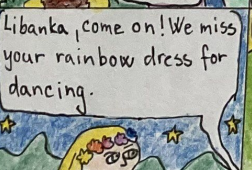 Libanka, come on! We miss
your rainbow dress for
dancing.